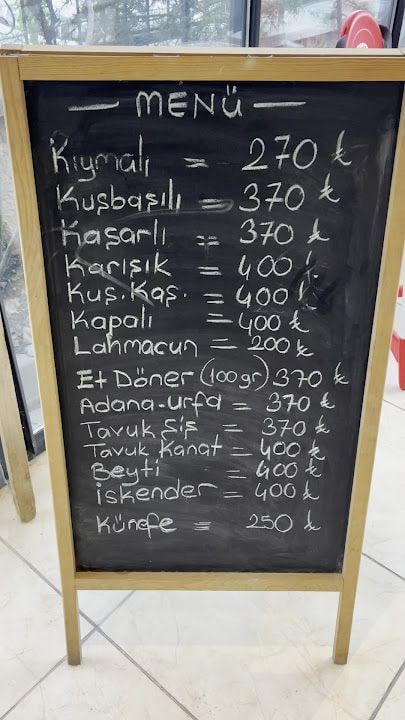 — MENÜ —
Kıymalı = 270 ₺
Kuşbaşılı = 370 ₺
Kaşarlı = 370 ₺
Karışık = 400 ₺
Kuş. Kaş. = 400 ₺
Kapalı = 400 ₺
Lahmacun = 200 ₺
Et Döner (100 gr) 370 ₺
Adana-urfa = 370 ₺
Tavuk Şiş = 370 ₺
Tavuk Kanat = 400 ₺
Beyti = 400 ₺
İskender = 400 ₺
Künefe = 250 ₺